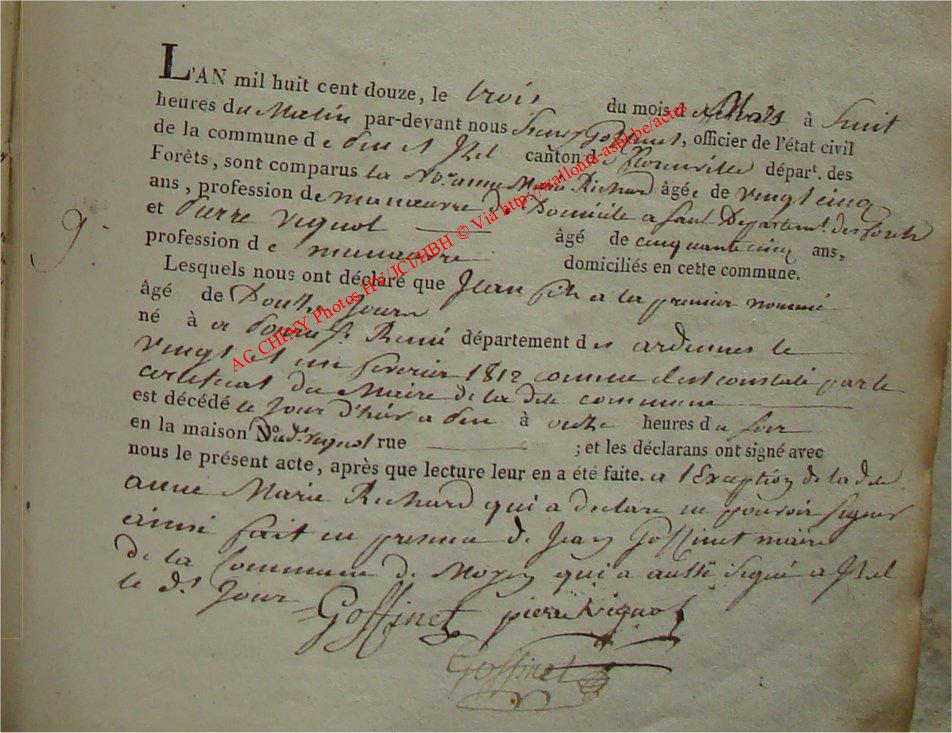 L'AN mil huit cent douze, le trois du mois de Mars à huit
heures du Matin par-devant nous Goffinet, officier de l'état civil
de la commune d e Pin et Izel canton de florenville départ. des
Forêts, sont comparus la anne Marie Richard âgée de vingt cinq
ans, profession de manœuvre de Domicile a Departemt. des forets
et Pierre Vignol âgé de cinquante cinq ans,
profession d e manœuvre domiciliés en cette commune.
9.
Lesquels nous ont déclaré que Jean fils a la premier nommé
âgé de Jours
né à département des ardennes le
vingt et un fevrier 1812 comme il est constaté par le
certificat du Maire de la dte commune
est décédé le Jour d'hier a Pin à onze heures du soir
en la maison No. du dt. vignol rue ; et les déclarans ont signé avec
nous le présent acte, après que lecture leur en a été faite. a l'Exception de la dite
anne Marie Richard qui a declare ne pouvoir signer
ainsi fait en presence de Jean Goffinet maire
de la Commune de Moyen qui a aussi signé a Izel
le dt Jour Goffinet pierre Vignol
Goffinet
AG CHINY Photos HJ/JCI/HBH © Via http://wallonia-asbl.be/acte/